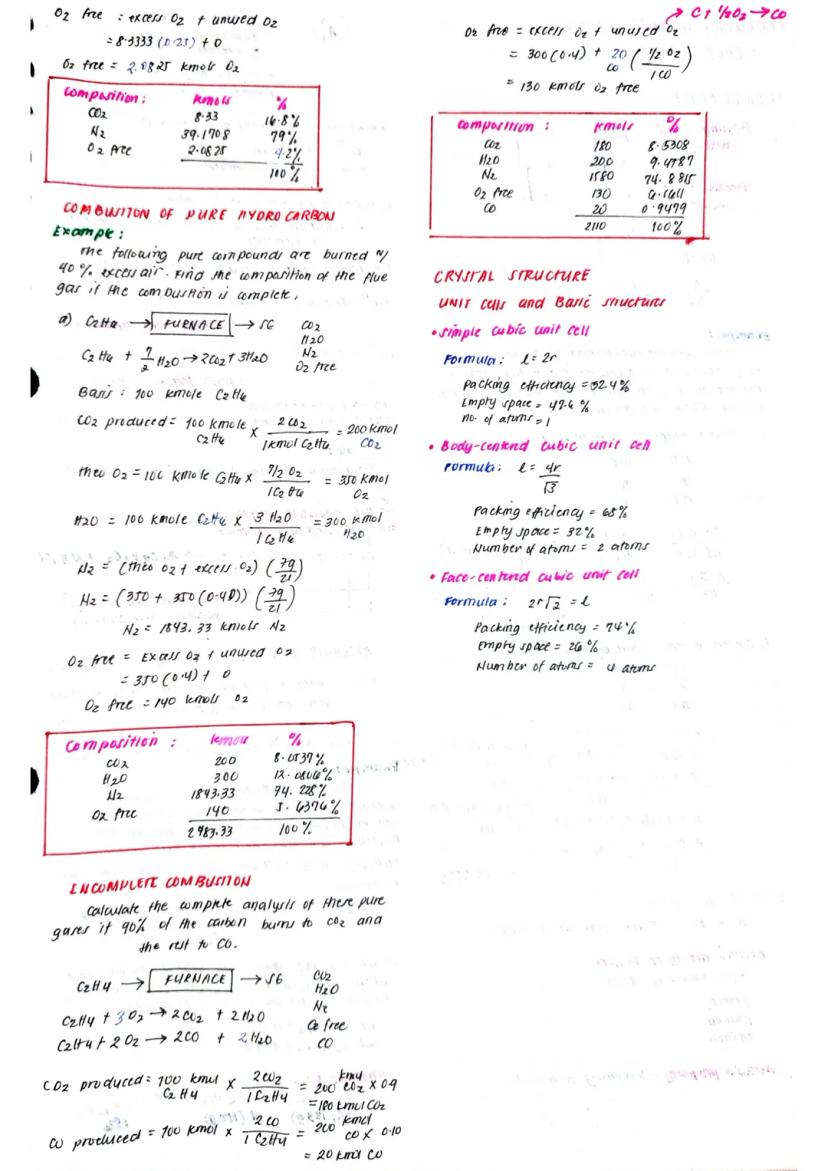 O2 free : excess O2 + unused O2
= 8.3333 (0.25) + 0
O2 free = 2.0825 kmols O2
Composition : kmols %
CO2 8.33 16.8%
N2 39.1708 79%
O2 free 2.0825 4.2%
100%
COMBUSITON OF PURE HYDROCARBON
Example:
The following pure compounds are burned w/
40% excess air. Find the composition of the flue
gas if the combustion is complete.
a) C2H6 → FURNACE → SG CO2
H2O
N2
O2 free
C2H6 + 7/2 H2O → 2CO2 + 3H2O
Basis : 100 kmole C2H6
CO2 produced = 100 kmole C2H6 × 2 CO2 / 1 kmol C2H6 = 200 kmol CO2
theo O2 = 100 kmole C2H6 × 7/2 O2 / 1 C2H6 = 350 kmol O2
H2O = 100 kmole C2H6 × 3 H2O / 1 C2H6 = 300 kmol H2O
N2 = (theo O2 + excess O2) (79/21)
N2 = (350 + 350 (0.40)) (79/21)
N2 = 1843.33 kmols N2
O2 free = Excess O2 + unused O2
= 350 (0.4) + 0
O2 free = 140 kmols O2
Composition : kmols %
CO2 200 8.0537%
H2O 300 12.0806%
N2 1843.33 74.228%
O2 free 140 5.6376%
2483.33 100%
INCOMPLETE COMBUSTION
Calculate the complete analysis of these pure
gases if 90% of the carbon burns to CO2 and
the rest to CO.
C2H4 → FURNACE → SG CO2
H2O
N2
O2 free
CO
C2H4 + 3O2 → 2CO2 + 2H2O
C2H4 + 2O2 → 2CO + 2H2O
CO2 produced = 100 kmol C2H4 × 2CO2 / 1 C2H4 = 200 kmol CO2 × 0.9
= 180 kmol CO2
CO produced = 100 kmol × 2CO / 1 C2H4 = 200 kmol CO × 0.10
= 20 kmol CO
C + 1/2O2 → CO
O2 free = excess O2 + unused O2
= 300 (0.4) + 20 CO (1/2 O2 / 1CO)
= 130 kmols O2 free
Composition : kmols %
CO2 180 8.5308
H2O 200 9.4787
N2 1580 74.8815
O2 free 130 6.1611
CO 20 0.9479
2110 100%
CRYSTAL STRUCTURE
UNIT Cells and Basic structures
• Simple cubic unit cell
Formula : l = 2r
Packing efficiency = 52.4%
Empty space = 47.6%
no. of atoms = 1
• Body-centered cubic unit cell
Formula : l = 4r/√3
Packing efficiency = 68%
Empty space = 32%
Number of atoms = 2 atoms
• Face-centered cubic unit cell
Formula : 2r√2 = l
Packing efficiency = 74%
Empty space = 26%
Number of atoms = 4 atoms